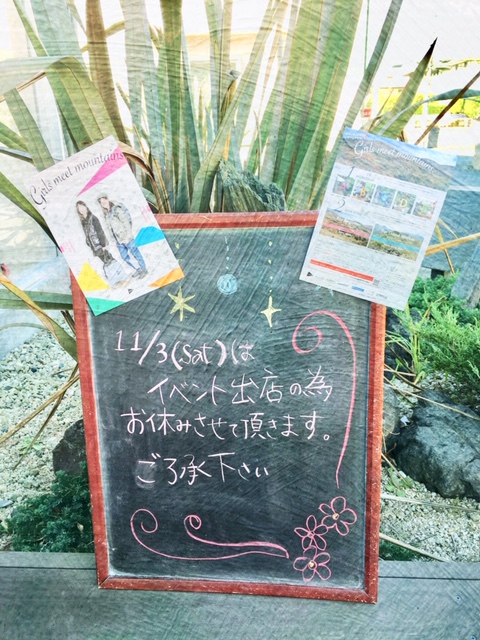 Girls meet mountains
Girls meet mountains
11/3(sat)は
イベント出店の為
お休みさせて頂きます。
ご了承下さい